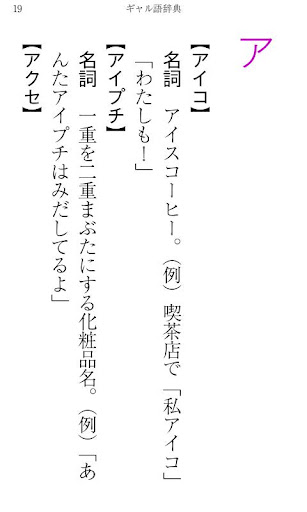 19
ギャル語辞典
ア
【アイコ】
名詞　アイスコーヒー。（例）喫茶店で「私アイコ」
「わたしも！」
【アイプチ】
名詞　一重を二重まぶたにする化粧品名。（例）「あ
んたアイプチはみだしてるよ」
【アクセ】